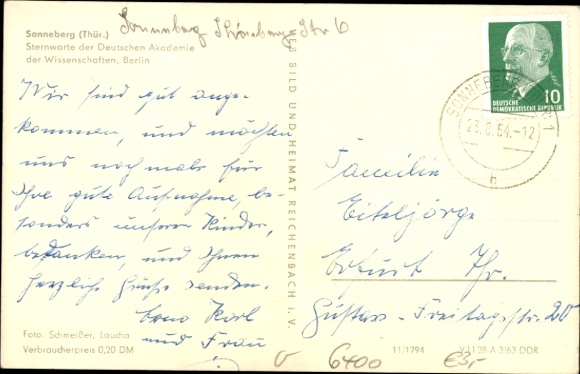 Sonneberg (Thür.)
Sternwarte der Deutschen Akademie
der Wissenschaften, Berlin
Sonneberg Schönberg Str 6
Wir sind gut ange-
kommen, und möchten
uns nochmals für
Ihre gute Aufnahme, be-
sonders unserer Kinder,
bedanken, und Ihnen
herzliche Grüße senden.
Karl
und Frau
Foto: Schmeißer, Laucha
Verbraucherpreis 0,20 DM
BILD UND HEIMAT REICHENBACH I. V.
10
DEUTSCHE
DEMOKRATISCHE REPUBLIK
SONNEBERG
23.6.64.-12
b
Familie
Eiteljörge
Erfurt Thr.
Gustav-Freitagstr. 20
11/1794
V 11 28 A 3/63 DDR
6400
€3,-